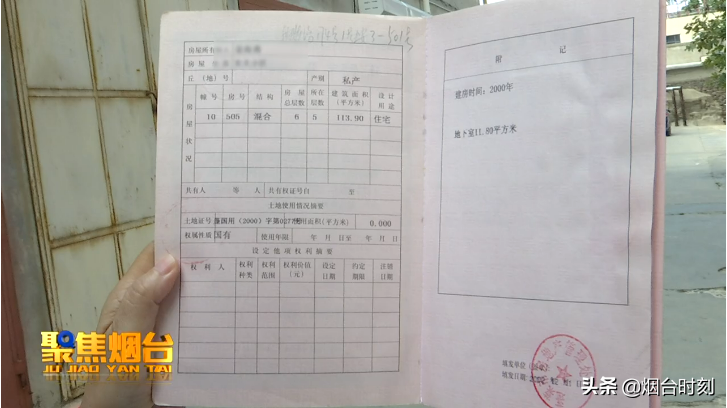 3-501号
房屋所有
房屋
丘（地）号 产别 私产
房屋状况
幢号 房号 结构 房屋总层数 所在层数 建筑面积（平方米） 设计用途
10 505 混合 6 5 113.90 住宅
共有人 等 人 共有权证号自 至
土地使用情况摘要
土地证号 国用（2000）字第 用面积(平方米) 0.000
权属性质 国有 使用年限 年 月 日至 年 月 日
设定他项权利摘要
权利人 权利种类 权利范围 权利价值（元） 设定日期 约定期限 注销日期
附 记
建房时间：2000年
地下室11.80平方米
填发单位
填发日期
聚焦烟台
JU JIAO YAN TAI
头条 @烟台时刻